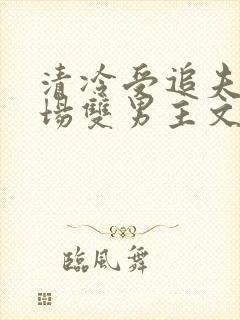 清冷受追夫
場雙男主文
臨風舞